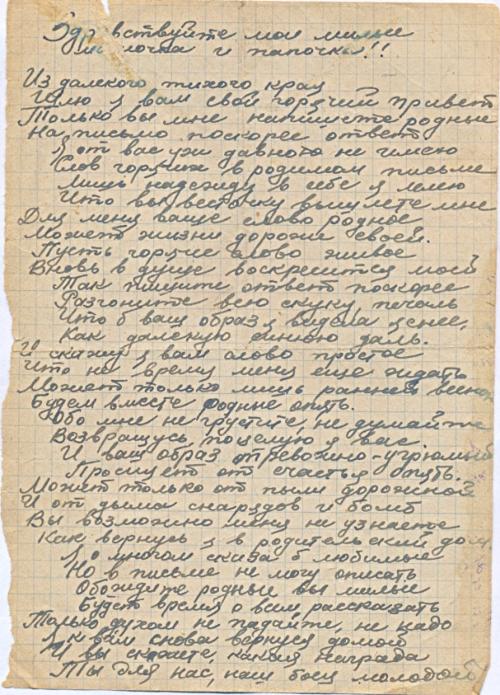 Здравствуйте мои милые
мамочка и папочка!!
Из далекого тихого края
Шлю я вам свой горячий привет
Только вы мне напишите родные
На письмо поскорее ответ
Я от вас уж давно то не имею
Слов горячих в родимом письме
Лишь надежду в себе я лелею
Что вы весточку вышлете мне
Для меня ваше слово родное
Может жизни дороже своей.
Пусть горячее слово живое
Вновь в душе воскресится моей
Так пишите ответ поскорее
Разгоните всю скуку, печаль
Что б ваш образ я видела яснее,
Как далекую синюю даль.
И скажу я вам слово простое
Что не время меня еще ждать
Может только лишь ранней весной
Будем вместе родные опять.
Обо мне не грустите, не думайте
Возвращусь, поцелую я вас.
И ваш образ тревожно-угрюмый
Просияет от счастья опять.
Может только от пыли дорожной
И от дыма снарядов и бомб
Вы возможно меня не узнаете
Как вернусь я в родительский дом
Я о многом сказа б любимые
Но в письме не могу описать
Обождите родные вы милые
Будет время о всем рассказать
Только духом не падайте, не надо
Я к вам снова вернуся домой
И вы скажете, какая награда
Ты для нас, наш боец молодой